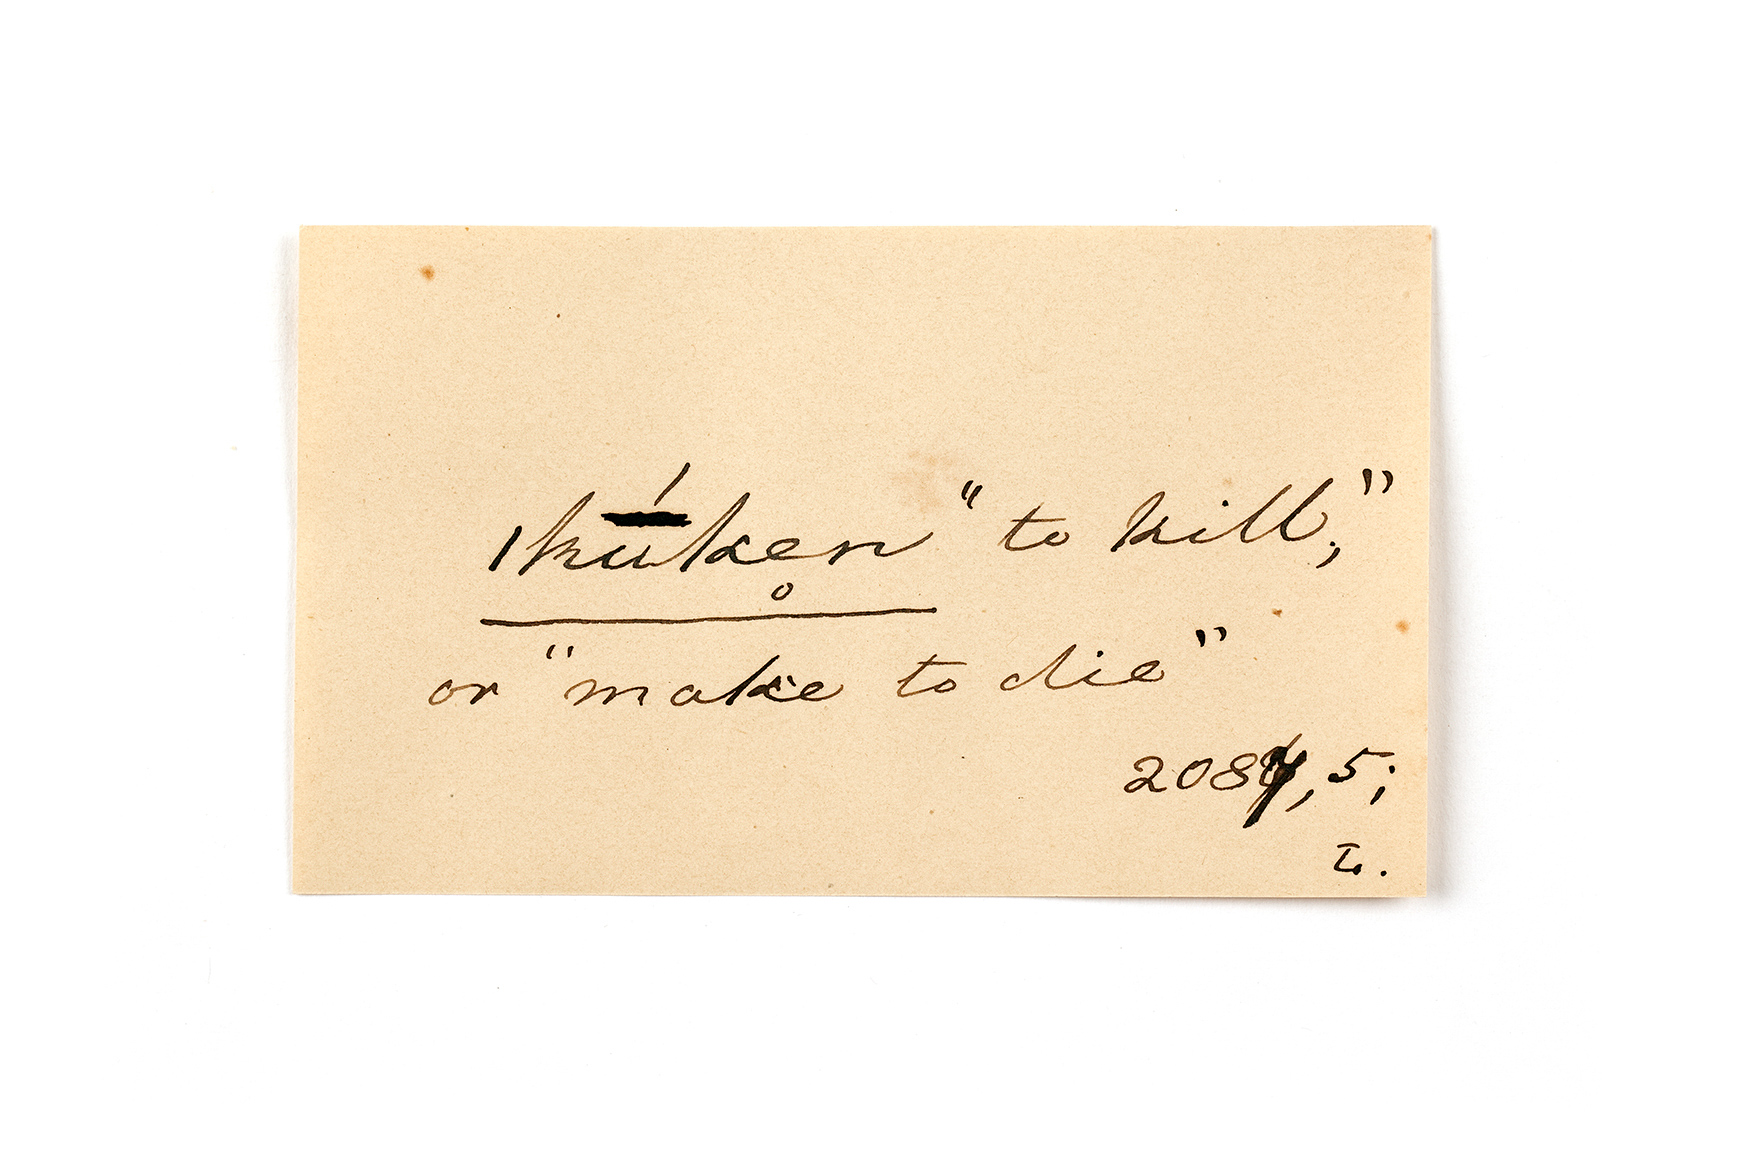 |kū́ke̥n “to kill;”
or “make to die”
2087, 5;
L.